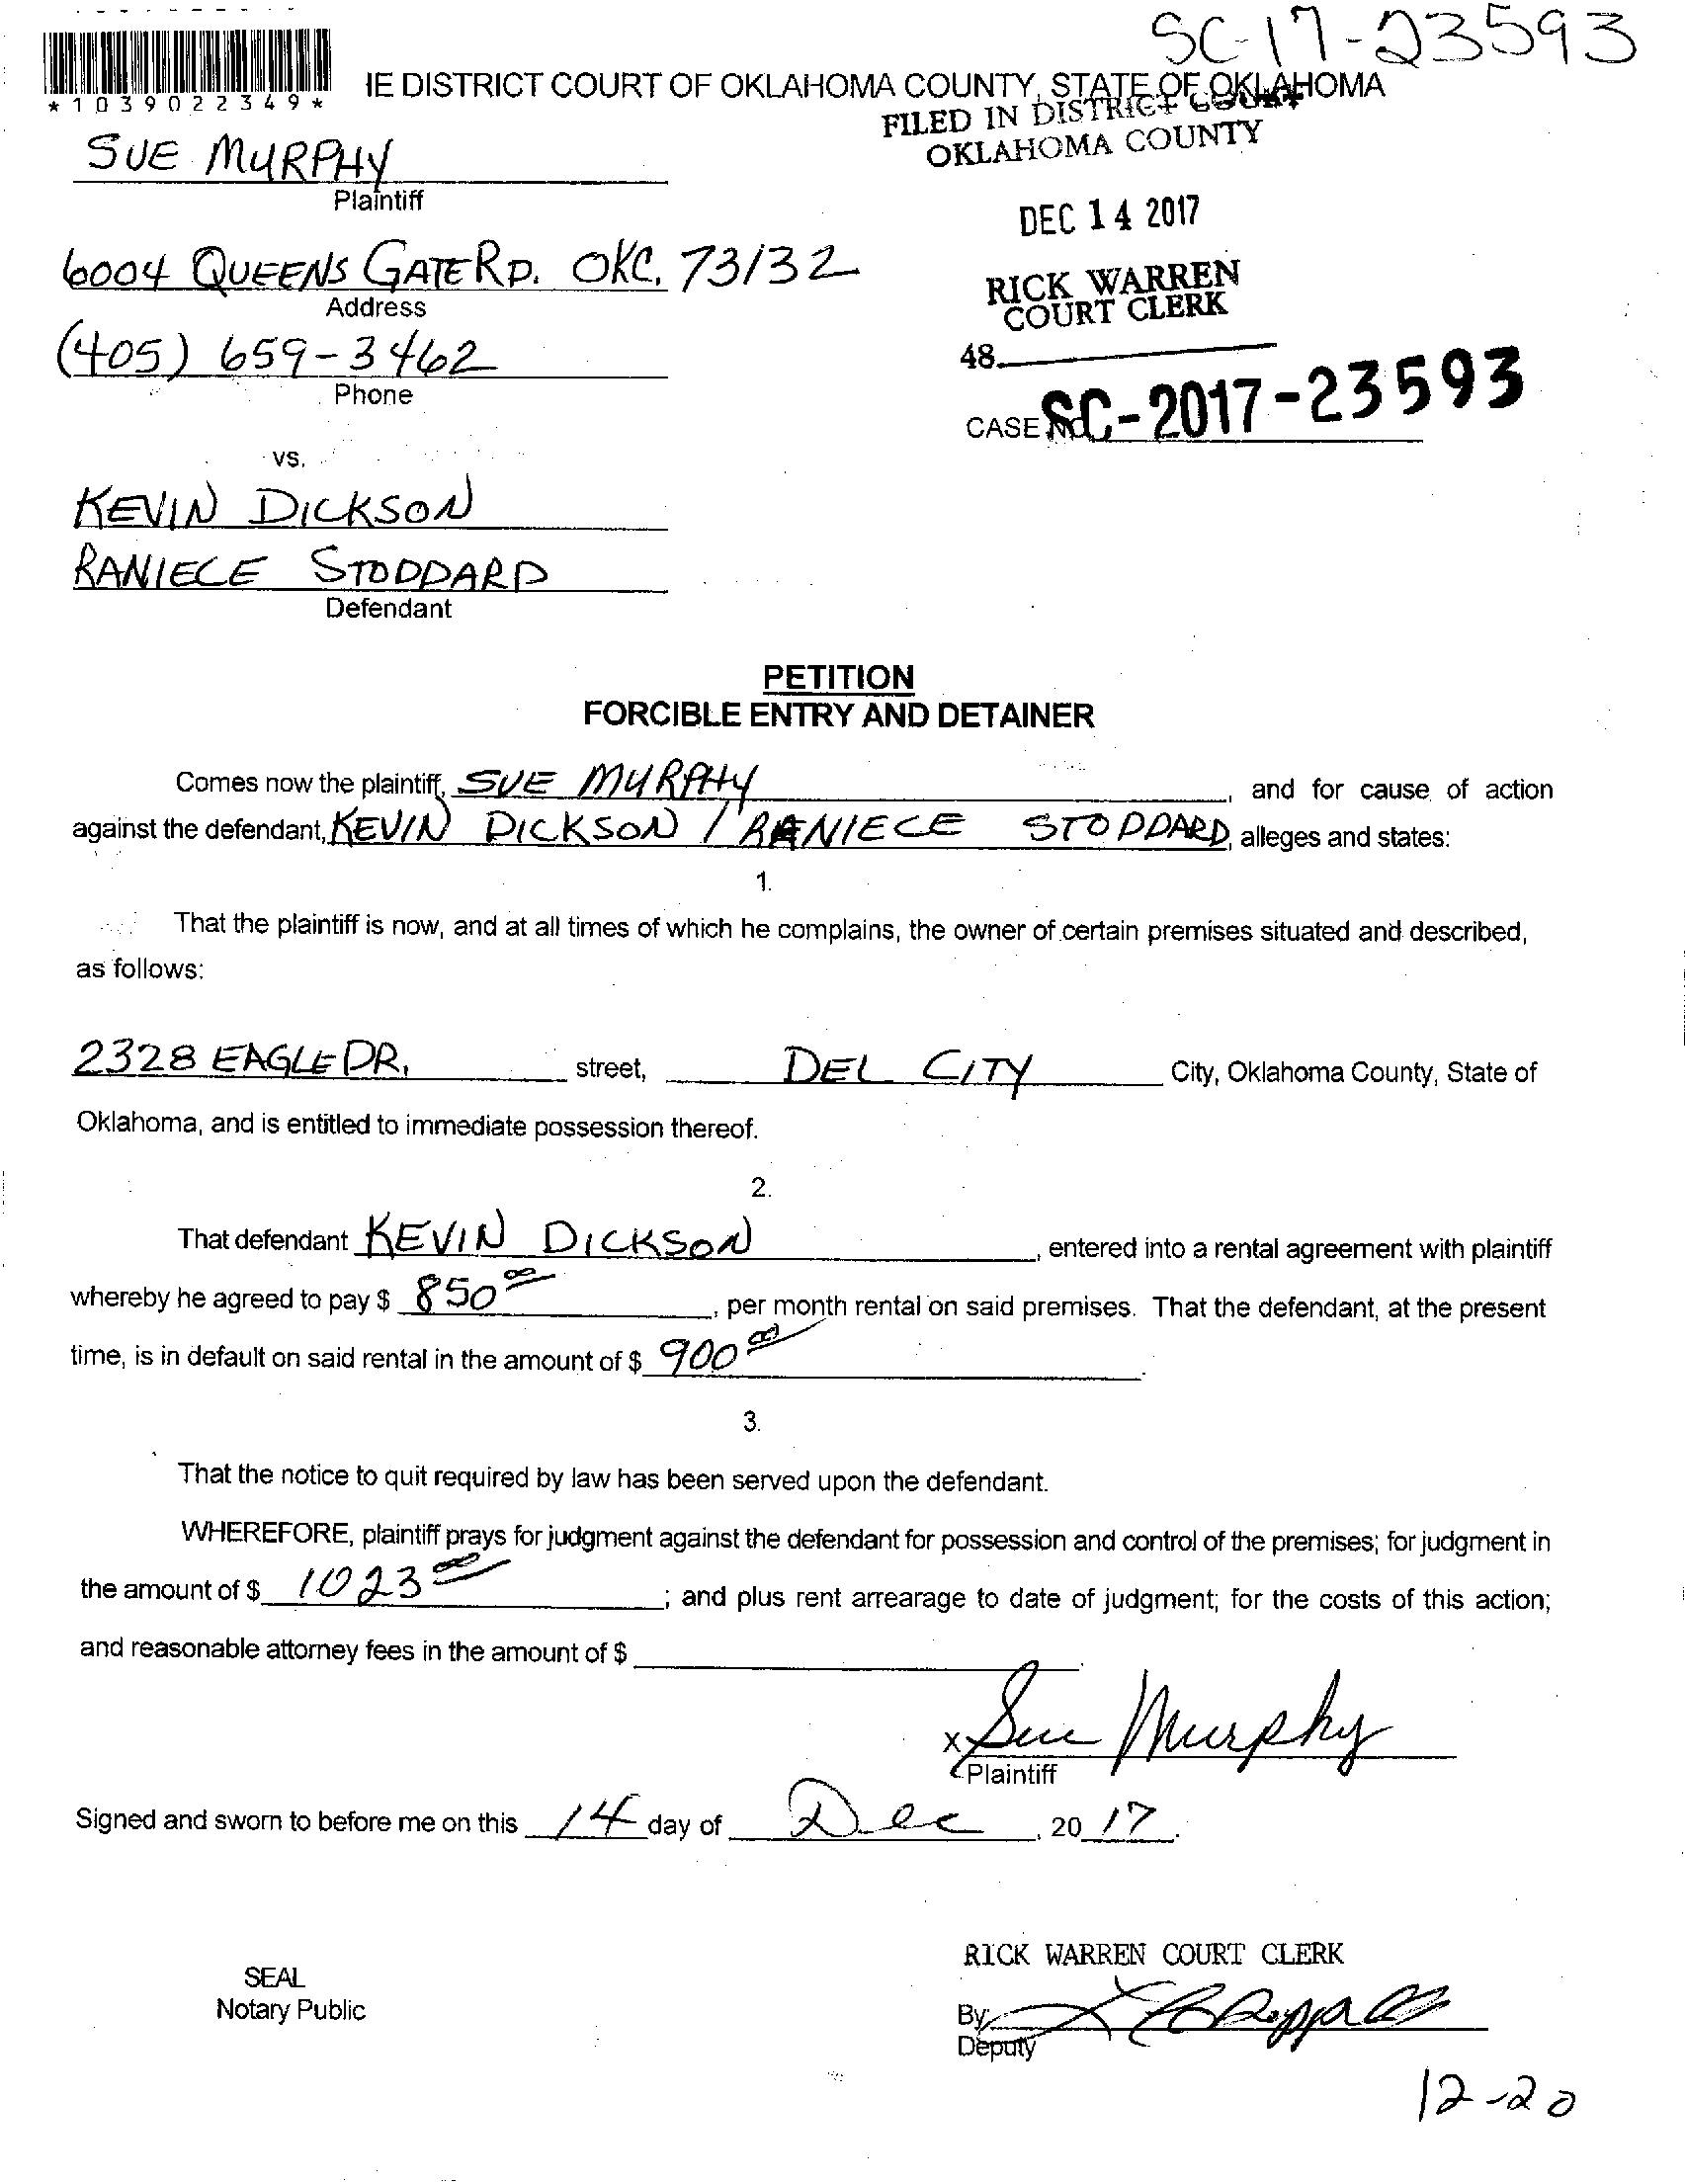 SC-17-23593
*1039022349*
IE DISTRICT COURT OF OKLAHOMA COUNTY, STATE OF OKLAHOMA
FILED IN DISTRICT COURT
OKLAHOMA COUNTY
SUE MURPHY
Plaintiff
DEC 14 2017
6004 QUEENS GATE RD. OKC. 73132
Address
RICK WARREN
COURT CLERK
(405) 659-3462
Phone
48
CASE NO. SC-2017-23593
vs.
KEVIN DICKSON
RANIECE STODDARD
Defendant
PETITION
FORCIBLE ENTRY AND DETAINER
Comes now the plaintiff, SUE MURPHY, and for cause of action
against the defendant, KEVIN DICKSON / RANIECE STODDARD, alleges and states:
1.
That the plaintiff is now, and at all times of which he complains, the owner of certain premises situated and described,
as follows:
2328 EAGLE DR, street, DEL CITY City, Oklahoma County, State of
Oklahoma, and is entitled to immediate possession thereof.
2.
That defendant KEVIN DICKSON, entered into a rental agreement with plaintiff
whereby he agreed to pay $ 850 00, per month rental on said premises. That the defendant, at the present
time, is in default on said rental in the amount of $ 900 00.
3.
That the notice to quit required by law has been served upon the defendant.
WHEREFORE, plaintiff prays for judgment against the defendant for possession and control of the premises; for judgment in
the amount of $ 1023 00; and plus rent arrearage to date of judgment; for the costs of this action;
and reasonable attorney fees in the amount of $
x Sue Murphy
Plaintiff
Signed and sworn to before me on this 14 day of Dec, 20 17.
RICK WARREN COURT CLERK
SEAL
Notary Public
By
Deputy
12-20